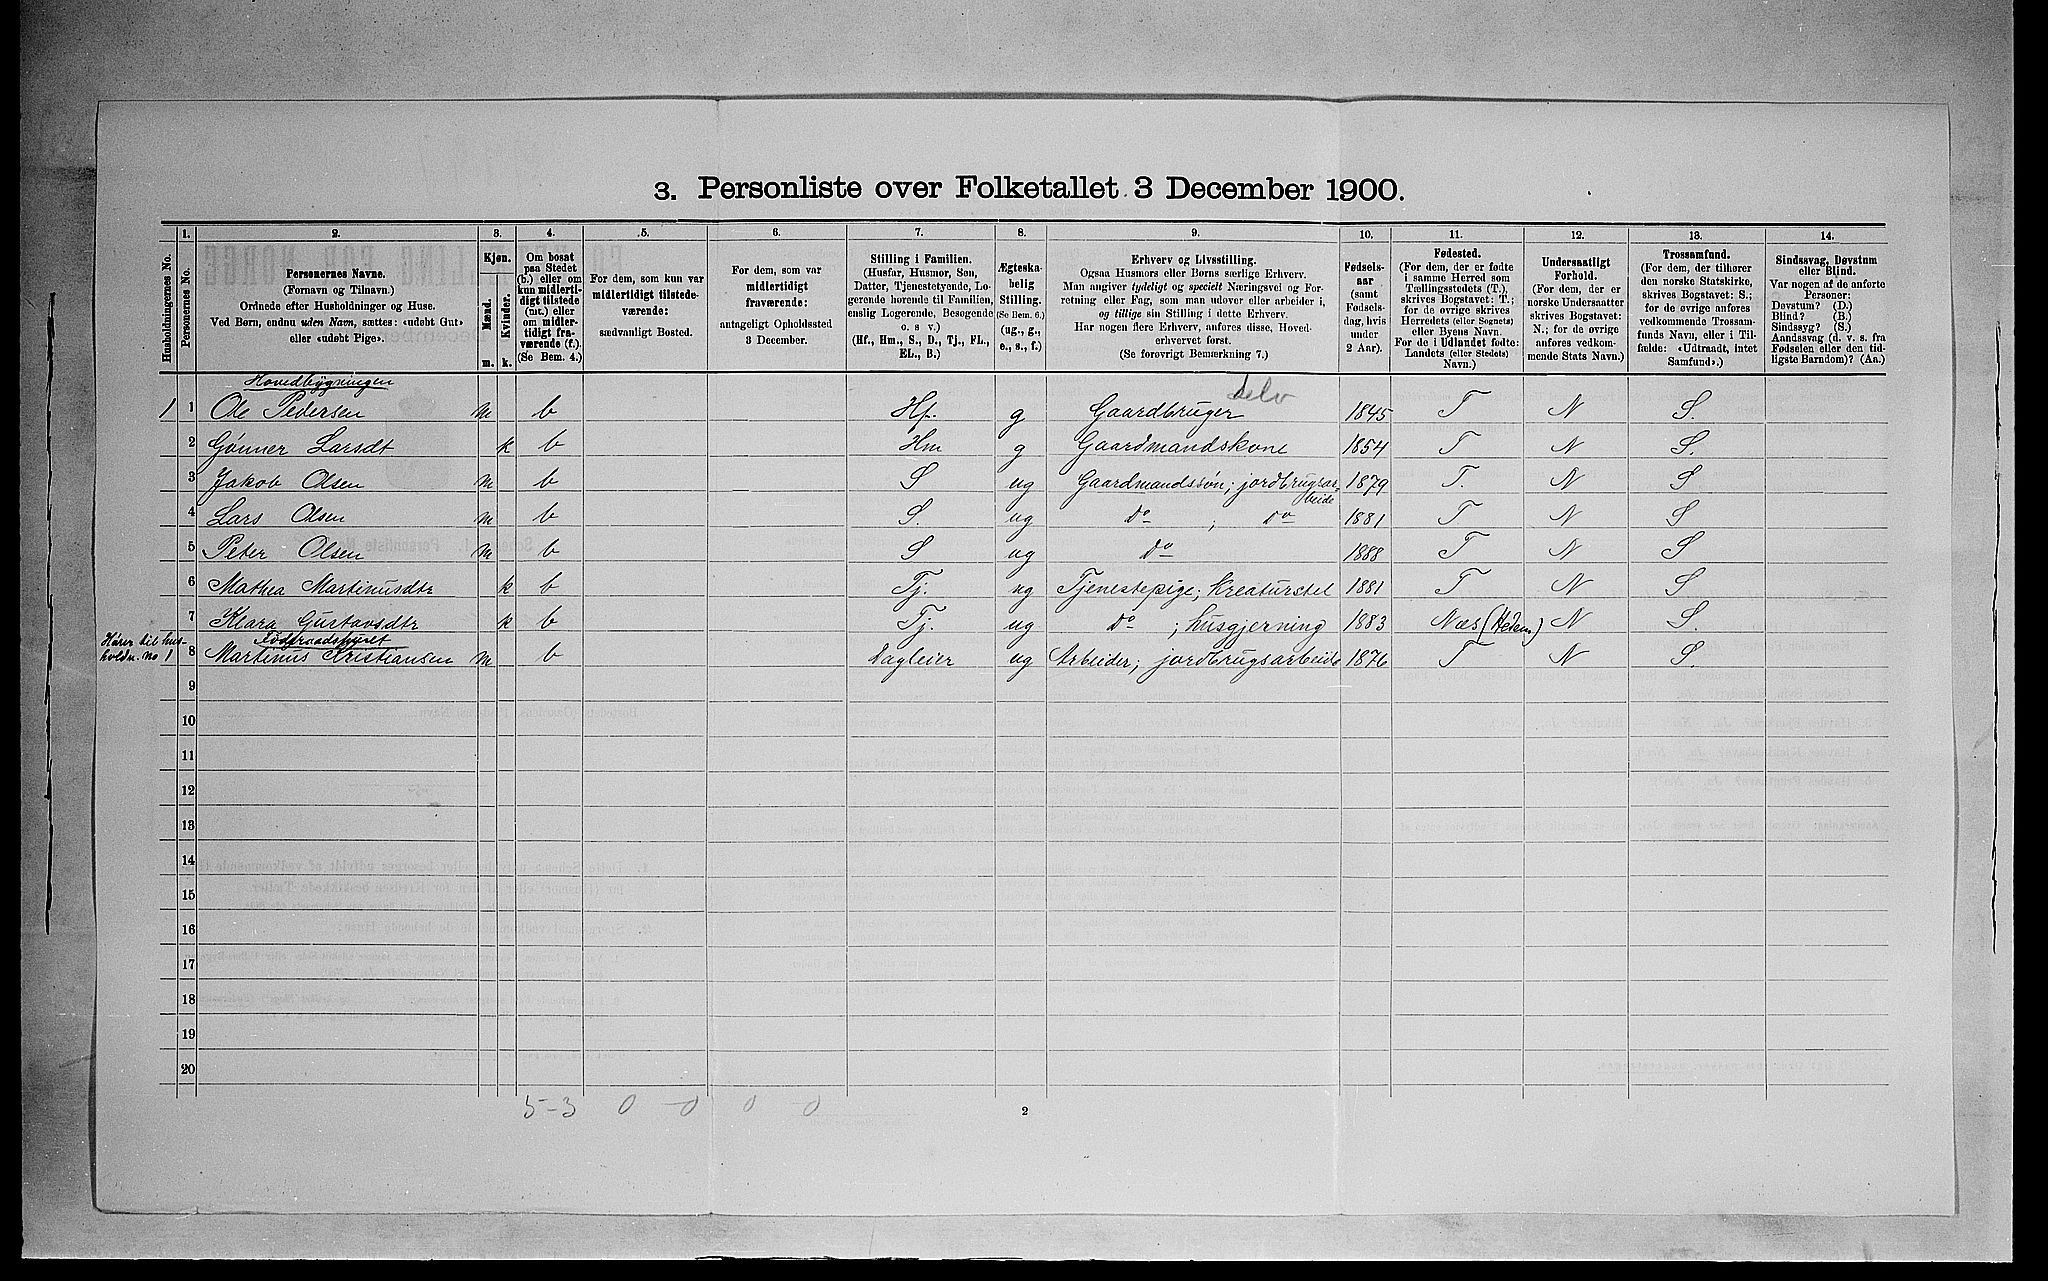 3. Personliste over Folketallet 3 December 1900.
1. 2. 3. 4. 5. 6. 7. 8. 9. 10. 11. 12. 13. 14.
Husholdningernes No.
Personernes No.
Personernes Navne.
(Fornavn og Tilnavn.)
Ordnede efter Husholdninger og Huse.
Ved Børn, endnu uden Navn, sættes: «udøbt Gut»
eller «udøbt Pige».
Kjøn.
Mænd.
Kvinder.
m. k.
Om bosat
paa Stedet
(b.) eller om
kun midlerti-
digt tilstede
(mt.) eller
om midler-
tidigt fra-
værende (f.).
(Se Bem. 4.)
For dem, som kun var
midlertidigt tilstede-
værende:
sædvanligt Bosted.
For dem, som var
midlertidigt
fraværende:
antageligt Opholdssted
3 December.
Stilling i Familien.
(Husfar, Husmor, Søn,
Datter, Tjenestetyende, Lo-
gerende hørende til Familien,
enslig Logerende, Besøgende
o. s v.)
(Hf., Hm., S., D., Tj., FL.,
EL., B.)
Ægteska-
belig
Stilling.
(Se Bem. 6.)
(ug., g.,
e., s., f.)
Erhverv og Livsstilling.
Ogsaa Husmors eller Børns særlige Erhverv.
Man angiver tydeligt og specielt Næringsvei og For-
retning eller Fag, som man udøver eller arbeider i,
og tillige sin Stilling i dette Erhverv.
Har nogen flere Erhverv, anføres disse, Hoved-
erhvervet først.
(Se forøvrigt Bemærkning 7.)
Fødsels-
aar
(samt
Fødsels-
dag, hvis
under
2 Aar).
Fødested.
(For dem, der er fødte
i samme Herred som
Tællingsstedets (T.),
skrives Bogstavet: T.;
for de øvrige skrives
Herredets (eller Sognets)
eller Byens Navn.
For de i Udlandet fødte:
Landets (eller Stedets)
Navn.)
Undersaatligt
Forhold.
(For dem, der er
norske Undersaatter
skrives Bogstavet:
N.; for de øvrige
anføres vedkom-
mende Stats Navn.)
Trossamfund.
(For dem, der tilhører
den norske Statskirke,
skrives Bogstavet: S.;
for de øvrige anføres
vedkommende Trossam-
funds Navn, eller i Til-
fælde: «Udtraadt, intet
Samfund».)
Sindssvag, Døvstum
eller Blind.
Var nogen af de anførte
Personer:
Døvstum? (D.)
Blind? (B.)
Sindssyg? (S.)
Aandssvag (d. v. s. fra
Fødselen eller den tid-
ligste Barndom)? (Aa.)
Hovedbygningen
Selv
1 1 Ole Pedersen m b Hf. g Gaardbruger 1845 T N S.
2 Gønner Larsdt k b Hm g Gaardmandskone 1854 T N S.
3 Jakob Olsen m b S ug Gaardmandssøn; jordbrugsar- 1879 T. N S
beide
4 Lars Olsen m b S. ug do ; do 1881 T N S
5 Peter Olsen m b S ug do 1888 T N S
6 Mathea Martinusdtr k b Tj. ug Tjenestepige; Kreaturstel 1881 T N S
7 Klara Gustavsdtr k b Tj. ug do ; husgjerning 1883 Næs (Hedem.) N S.
Hører til hus-
holdn. no 1
Födraadsbygget
8 Martinus Kristiansen m b Dagleier ug Arbeider; jordbrugsarbeide 1876 T N S.
9
10
11
12
13
14
15
16
17
18
19
20
5-3 0 - 0 0 0
2